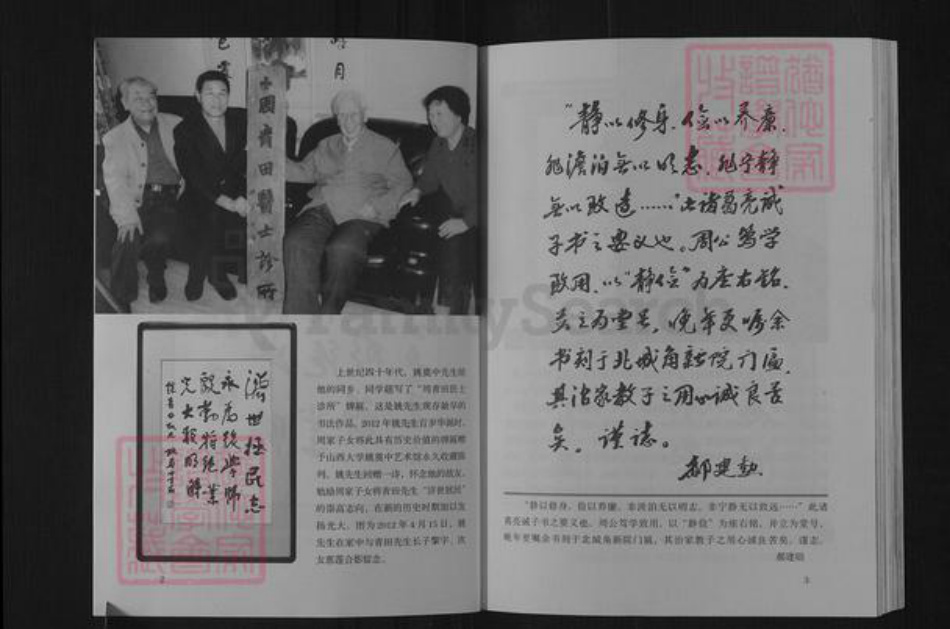 周青田醫士診所
濟世拯民志
永為後學師
上世纪四十年代，姚奠中先生给
他的同乡、同学题写了“周青田医士
诊所”牌匾。这是姚先生现存最早的
书法作品。2012年姚先生百岁华诞时，
周家子女将此具有历史价值的牌匾赠
于山西大学姚奠中艺术馆永久收藏陈
列。姚先生回赠一诗，怀念他的故友，
勉励周家子女将青田先生“济世拯民”
的崇高志向，在新的历史时期加以发
扬光大。图为2012年4月15日，姚
先生在家中与青田先生长子黎宇、次
女慕莲合影留念。
2
“静以修身，俭以养廉，
非澹泊无以明志，非宁静
无以致远……”此诸葛亮诫
子书之要义也。周公笃学
致用，以“静俭”为座右铭，
并立为堂号，晚年更嘱余
书刻于北城角新院门匾，
其治家教子之用心诚良苦
矣。谨志。
郝建勋
“静以修身，俭以养廉，非淡泊无以明志，非宁静无以致远……”此诸
葛亮诫子书之要义也。周公笃学致用，以“静俭”为座右铭，并立为堂号，
晚年更嘱余书刻于北城角新院门匾，其治家教子之用心诚良苦矣。谨志。
郝建勋
3
FamilySearch